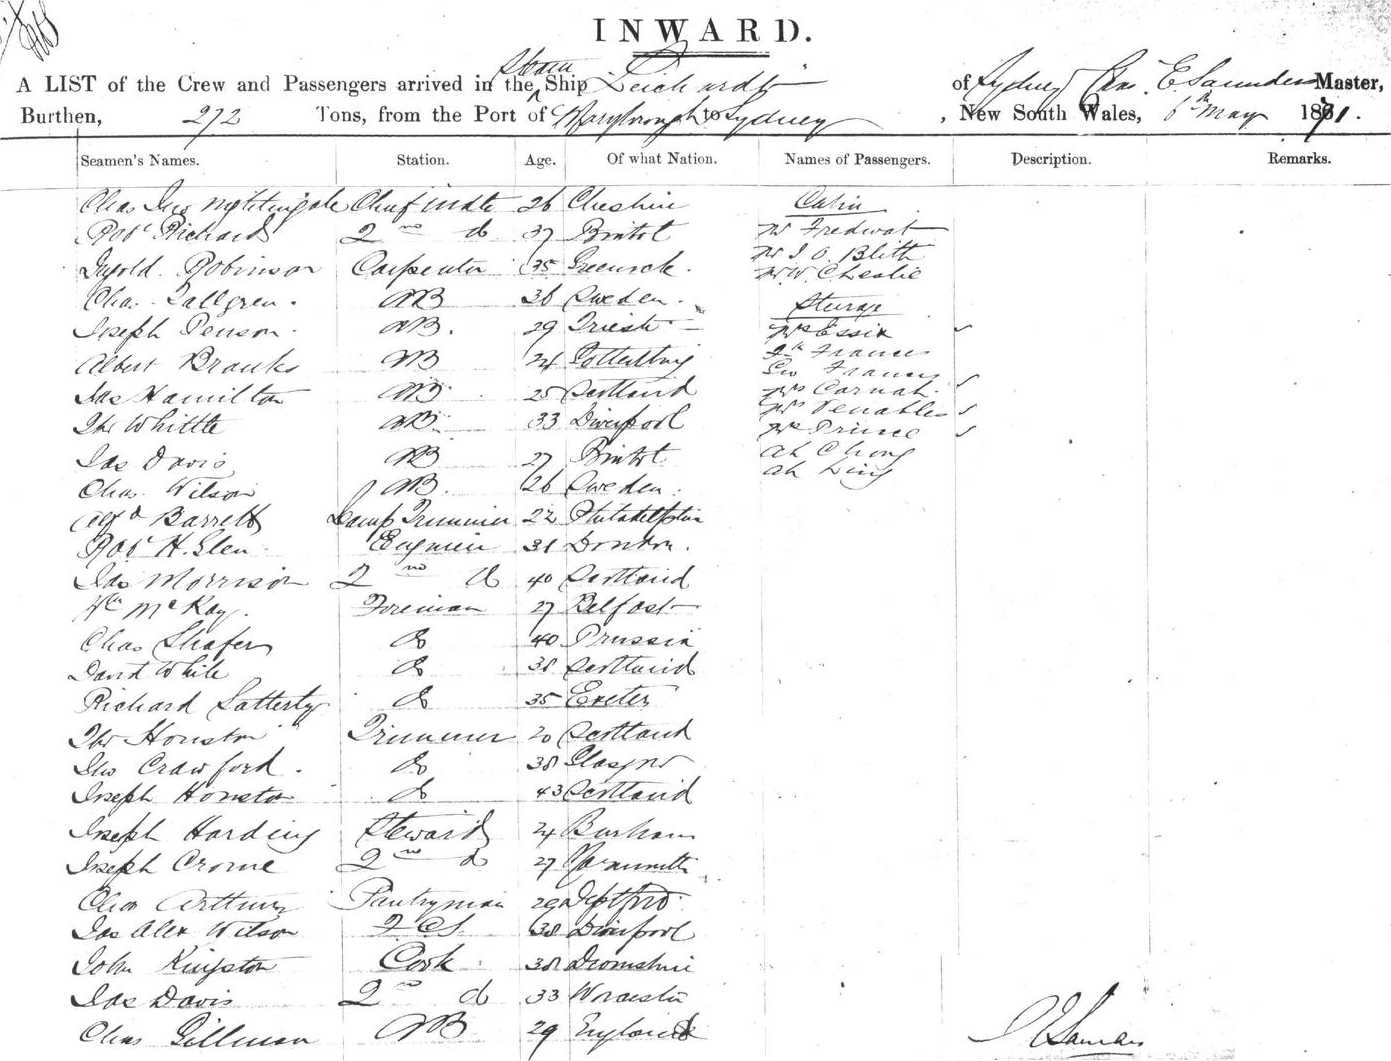 INWARD.
A LIST of the Crew and Passengers arrived in the Steam Ship Leichardt of Sydney Chas. E Saunders Master,
Burthen, 272 Tons, from the Port of Maryborough to Sydney, New South Wales, 6th May 1871.
Seamen's Names. Station. Age. Of what Nation. Names of Passengers. Description. Remarks.
Chas Jno Nightingale Chief mate 26 Cheshire Cabin
Robt Richard 2nd do 37 Bristol Mr Fredwat
Mr J. O. Blith
Robinson Carpenter 35 Greenock. Mr W. Cheslie
Chas. Tallgren. AB 36 Sweden. Sturge
Joseph Penson. AB. 29 Trieste Mrs Essex
Albert Brauks AB 24 Gottenburg Frances
Geo Frances
Jas Hamilton AB 25 Scotland Mrs Carnah.
Thos Whittle AB 33 Liverpool Mrs Venables
Mrs Prince
Jas Davis AB 27 Bristol Ah Chong
Chas. Wilson AB. 26 Sweden. Ah Ling
Alfd Barrett Lamp Trimmer 22 Philadelphia
Robt H. Glen Engineer 31 London.
Jas Morrison 2nd do 40 Scotland
Wm McKay. Foreman 27 Belfast
Chas Shafer do 40 Prussia
David White do 38 Scotland
Richard Latterty do 35 Exeter
Thos Houston Trimmer 20 Scotland
Jno Crawford. do 38 Glasgow
Joseph Houston do 43 Scotland
Joseph Harding Steward 24 Burham
Joseph Crome 2nd do 27 Yarmouth
Chas Arthur Pantryman 29 Deptford
Jas Alex Wilson F C S 38 Liverpool
John Kingston Cook 38 Devonshire
Jas Davis 2nd do 33 Worcester
Chas Gillman AB 29 England
C E Saunders